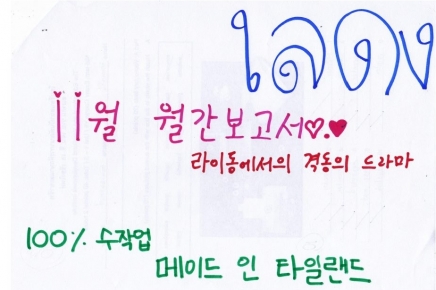 11월 월간보고서♡.♥
라이동에서의 격동의 드라마
100% 수작업
메이드 인 타일랜드